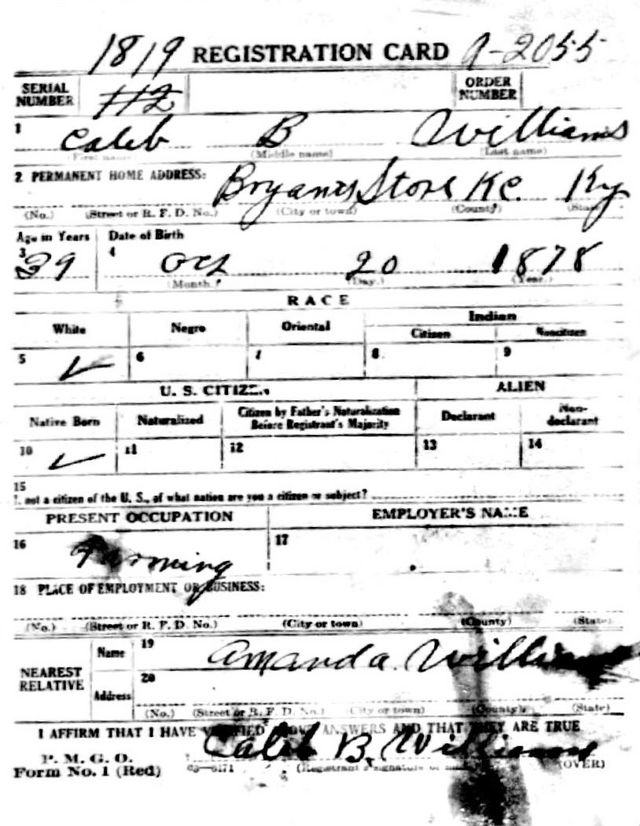 1819 REGISTRATION CARD A-2055
SERIAL NUMBER 112 ORDER NUMBER
1 Caleb B Williams
(First name) (Middle name) (Last name)
2 PERMANENT HOME ADDRESS: Bryants Store K.C. Ky
(No.) (Street or R. F. D. No.) (City or town) (County) (State)
Age in Years Date of Birth
3 39 4 Oct 20 1878
(Month.) (Day.) (Year.)
RACE
White Negro Oriental Indian
Citizen Noncitizen
5 ✓ 6 7 8 9
U. S. CITIZEN ALIEN
Native Born Naturalized Citizen by Father's Naturalization Before Registrant's Majority Declarant Non-declarant
10 ✓ 11 12 13 14
15
If not a citizen of the U. S., of what nation are you a citizen or subject?
PRESENT OCCUPATION EMPLOYER'S NAME
16 Farming 17
18 PLACE OF EMPLOYMENT OR BUSINESS:
(No.) (Street or R. F. D. No.) (City or town) (County) (State)
NEAREST RELATIVE Name 19 Amanda Williams
Address 20
(No.) (Street or R. F. D. No.) (City or town) (County) (State)
I AFFIRM THAT I HAVE VERIFIED ABOVE ANSWERS AND THAT THEY ARE TRUE
P. M. G. O.
Form No. 1 (Red) Caleb B. Williams
(Registrant's signature or mark) (OVER)